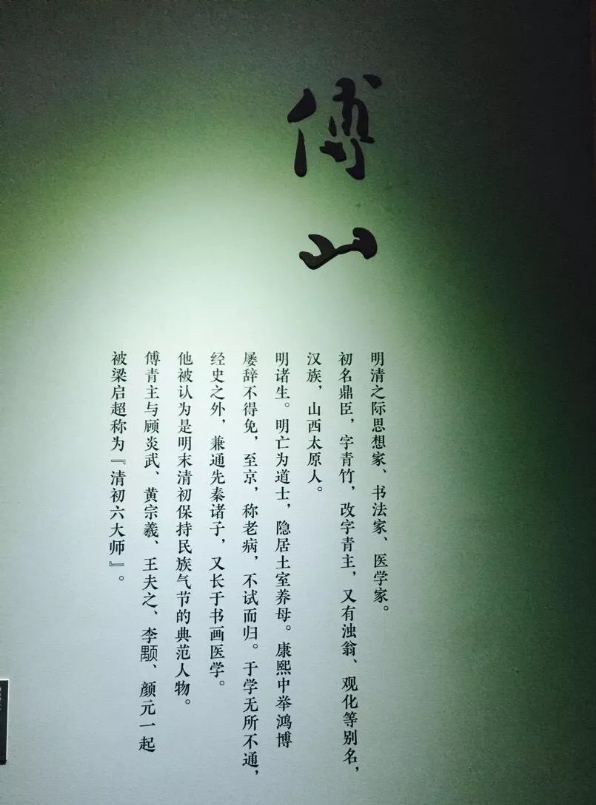 傅山
明清之际思想家、书法家、医学家。
初名鼎臣，字青竹，改字青主，又有浊翁、观化等别名，
汉族，山西太原人。
明诸生。明亡为道士，隐居土室养母。康熙中举鸿博
屡辞不得免，至京，称老病，不试而归。于学无所不通，
经史之外，兼通先秦诸子，又长于书画医学。
他被认为是明末清初保持民族气节的典范人物。
傅青主与顾炎武、黄宗羲、王夫之、李颙、颜元一起
被梁启超称为『清初六大师』。